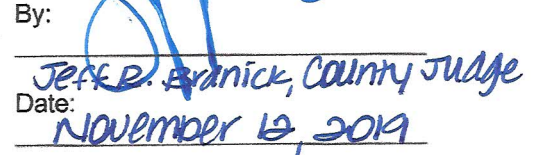 By:
Jeff R. Branick, County Judge
Date:
November 12, 2019